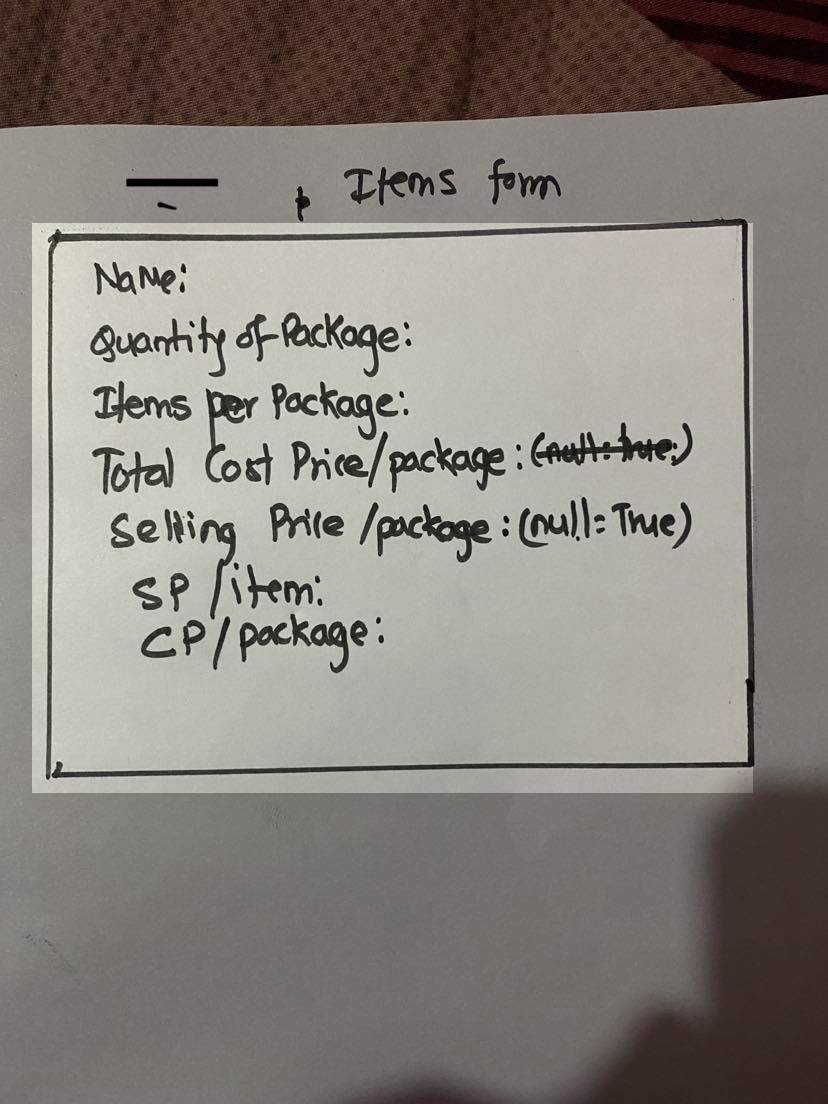 Items form
Name:
Quantity of Package:
Items per Package:
Total Cost Price/package: (null=true:)
Selling Price/package: (null=True)
SP/item:
CP/package: